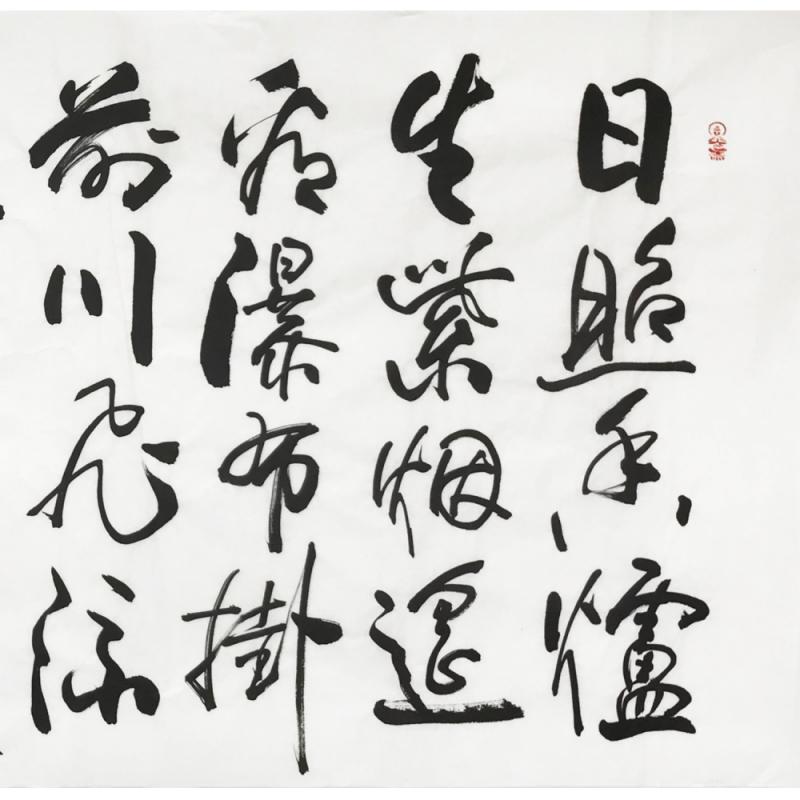 日照香爐
生紫烟遙
看瀑布掛
前川飛流